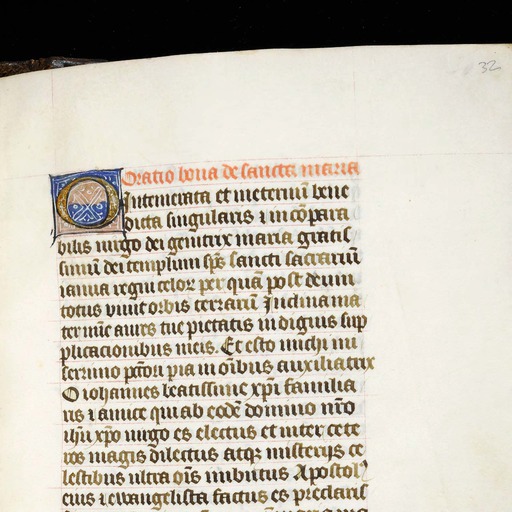 32
Oratio bona de sancta maria
O Intemerata et ineternū bene
dicta singularis ⁊ incōpara
bilis uirgo dei genitrix maria gratis
simū dei templum sp̄s sancti sacrariū
ianua regni celoꝝ per quā post deum
totus viuit orbis terrarū Inclina ma
ter mīe aures tue pietatis indignis sup
plicacionibus meis. Et esto michi mi
serrimo pctōri pia in oībus auxiliatrix
O iohannes beatissime xp̄i familia
ris ⁊ amice qui ab eodē domino nr̄o
ihū xp̄o uirgo es electus et inter cete
ros magis dilectus atqꝫ misterijs ce
lestibus ultra oīs inbutus Apostolꝰ
eius ⁊ ewangelista factus es preclaris